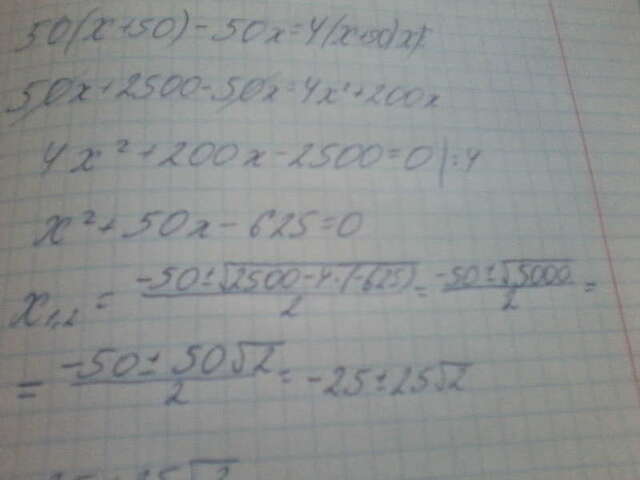 50(x+50)-50x=4(x+50)x
50x+2500-50x=4x²+200x
4x²+200x-2500=0|:4
x²+50x-625=0
x₁,₂=(-50±√(2500-4·(-625)))/2=(-50±√5000)/2=
=(-50±50√2)/2=-25±25√2